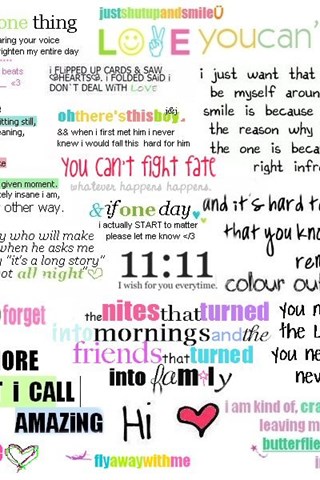 justshutupandsmileÜ
one thing
aring your voice
righten my entire day
beats
<3
LOVE
youcan'
i FLiPPED UP CARDS & SAW
@HEARTS@. i FOLDED SAiD i
DON`T DEAL WiTH LOVE
i just want that
be myself aroun
smile is because
the reason why
the one is beca
right infr
itting still,
eaning,
ohthere'sthisboy
&& when i first met him i never
knew i would fall this hard for him
ke
YOU CAN'T fiGHT fATE
whatever happens happens.
given moment.
tely insane i am,
other way.
&ifoneday
i actually START to matter
please let me know </3
and it's hard t
that you kno
rem
colour out
y who will make
when he asks me
y "it's a long story"
ot all night"
11:11
I wish for you everytime.
forget
the nites that turned
into mornings and the
friends that turned
into fam*ly
you n
the L
you ne
nev
ORE
T i CALL
AMAZiNG
Hi
i am kind of, cra
leaving m
butterflie
flyawaywithme
e
i